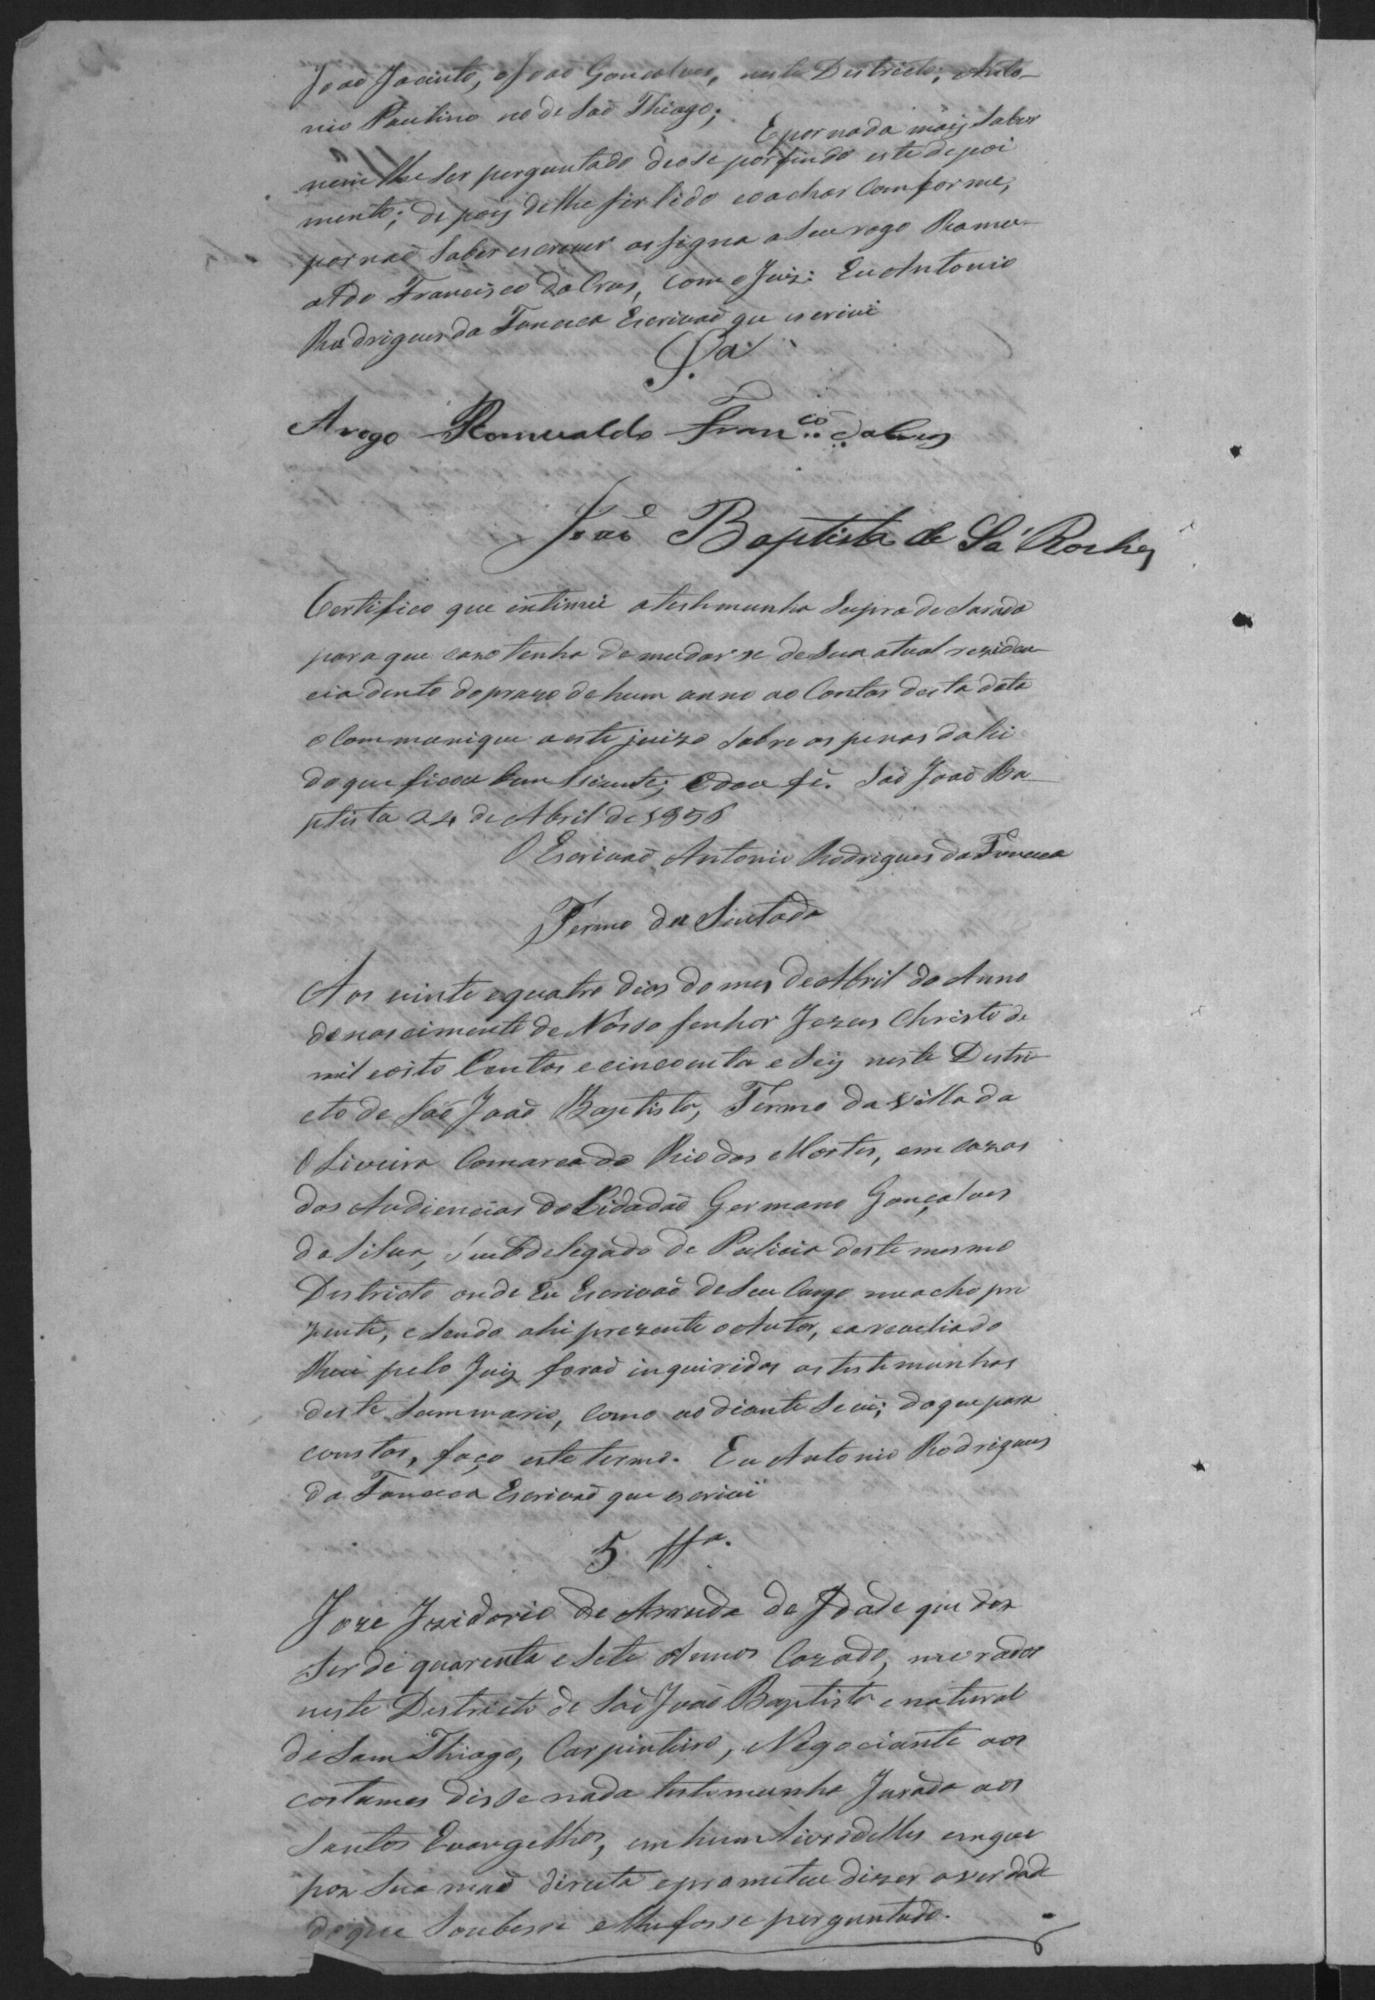 João Jacinto, e João Goncalves, neste Districto; Anto-
nio Paulino no de São Thiago;
E por nada mais saber
nem lhe ser perguntado deose por findo este depoi
mento; de pois de lhe ser lido e o achar Conforme,
por naõ Saber escrever as signa a Seu rogo Romu-
aldo Francisco da Crus, com o Juiz: Eu Antonio
Rodrigues da Fonceca Escrivaõ que escrivi
Sá
A rogo Romualdo Fran.co da Crus
Joaõ Baptista de Sá Rocha
Certifico que intimei a testemunha Supra declarada
para que cazo tenha de mudar se de Sua atual reziden-
cia dento do prazo de hum anno ao Contar desta data
o Communique a este juizo sobre as penas da lei
do que ficou bem Sciente; e dou fé. Saõ Joaõ Ba-
ptista 24 de Abril de 1856
O Escrivaõ Antonio Rodrigues da Fonceca
Termo da Sentada
Aos vinte e quatro dias do mes de Abril do Anno
do nascimento de Nosso Senhor Jezus Christo de
mil e oito Centos e cincoenta e Seis neste Distri-
cto de Saõ Joaõ Baptista, Termo da Villa da
Oliveira Comarca do Rio das Mortes, em cazas
das Audiencias do Cidadaõ Germano Gonçalves
da Silva, Subdelegado de Policia deste mesmo
Districto onde Eu Escrivaõ de Seu Cargo me acho pre
zente, e Sendo ahi prezente o Autor, e a revelia do
Reu pelo Juiz foraõ inquiridas as testemunhas
deste Summario, Como ao diante Se vê; do que para
constar, faço este termo. Eu Antonio Rodrigues
da Fonceca Escrivaõ que escrivi
5 tta.
Joze Izidorio de Arruda de Idade que dis
Ser de quarenta e Sete Annos Cazado, morador
neste Districto de Saõ Joaõ Baptista e natural
de Sam Thiago, Carpinteiro, Negociante aos
costumes disse nada testemunha Jurada aos
Santos Evangelhos, em hum livro delles em que
pos Sua maõ direita e prometeu dizer a verdade
do que Soubesse e lhe fosse perguntado.